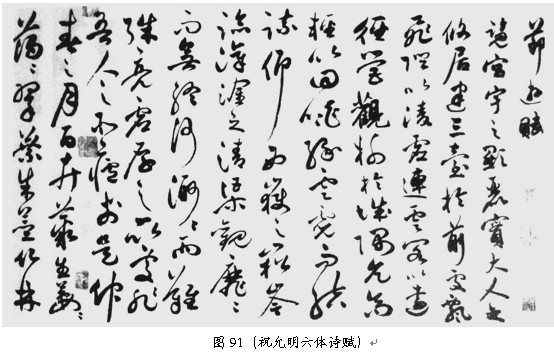 節遊賦
覽宮宇之顯麗實大人之
攸居建三臺於前處飄
飛陛以凌虛連雲閣以遠
徑營觀榭於城隅亢高
軒以回眺緣雲霓而結
疏仰西嶽之崧岑
臨漳滏之清渠觀靡〻
而無終何渺〻而難
殊亮靈后之所處非
吾人之所廬於是仲
春之月百卉叢生萋〻
藹〻翠葉朱莖竹林
图 91（祝允明六体诗赋）